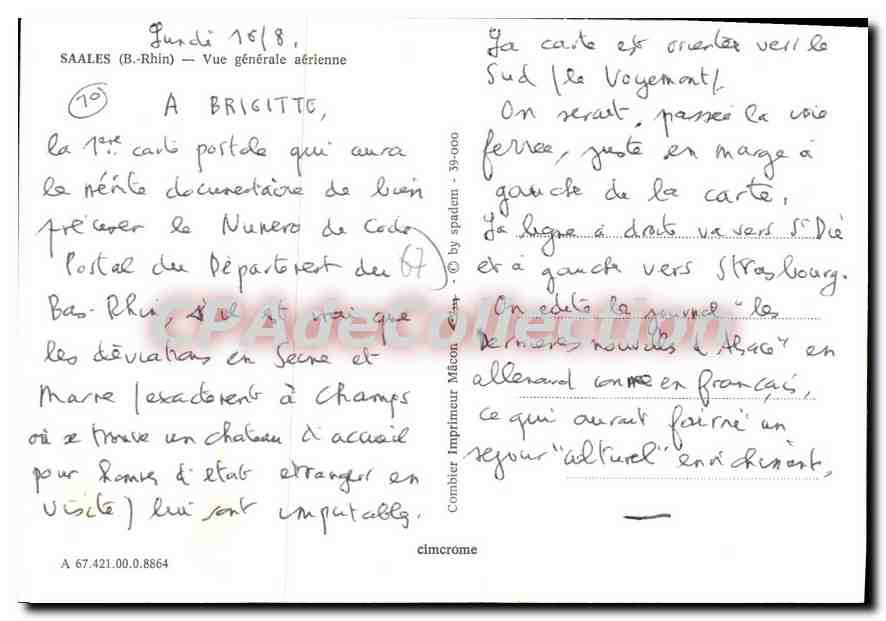 Lundi 16/8.
SAALES (B.-Rhin) — Vue générale aérienne
10
A BRIGITTE,
la 1ère carte postale qui aura
le mérite documentaire de bien
préciser le Numero de Code
Postal du Départerent du 67
Bas-Rhin, s'il est vrai que
les déviations en Seine et
Marne (exacterent à Champs
où se trouve un chateau d'accueil
pour homes d'etat etranger en
visite) lui sont imputables.
A 67.421.00.0.8864
Combier Imprimeur Mâcon - © by spadem - 39-000
cimcrome
La carte est orientée vers le
Sud (le Voyemont).
On serait, passée la voie
ferrée, juste en marge à
gauche de la carte.
La ligne à droite va vers St Dié
et à gauche vers Strasbourg.
On edite le journal "les
Dernières nouvelles d'Alsace" en
allemand comme en français,
ce qui aurait fourni un
sejour "culturel" enrichissant.
CPAdeCollection